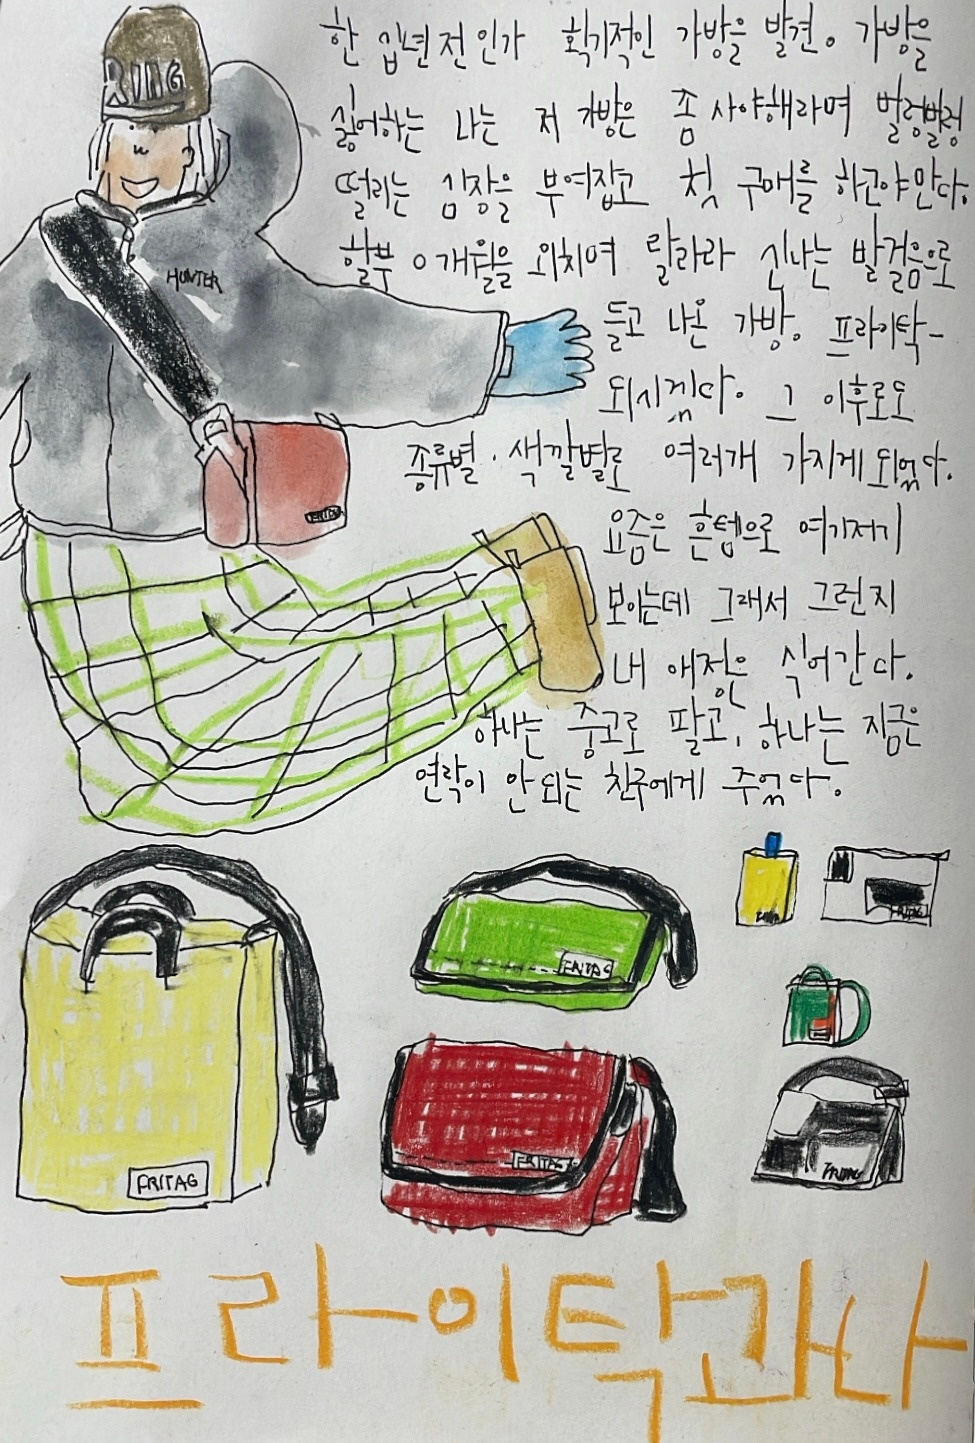 BING
한 십년전인가 획기적인 가방을 발견. 가방을
싫어하는 나는 저 가방은 좀 사야해라며 벌렁벌렁
떨리는 심장을 부여잡고 첫 구매를 하근야만다.
할부 0개월을 외치며 랄라라 신나는 발걸음으로
HUNTER
들고 나온 가방. 프라이탁-
되시겠다. 그 이후로도
종류별. 색깔별로 여러개 가지게 되었다.
요즘은 흔템으로 여기저기
보이는데 그래서 그런지
내 애정은 식어간다.
하나는 중고로 팔고, 하나는 지금은
연락이 안 되는 친구에게 주었다.
FRITAG
FRITAG
FRITAG
FRITAG
프라이탁과나